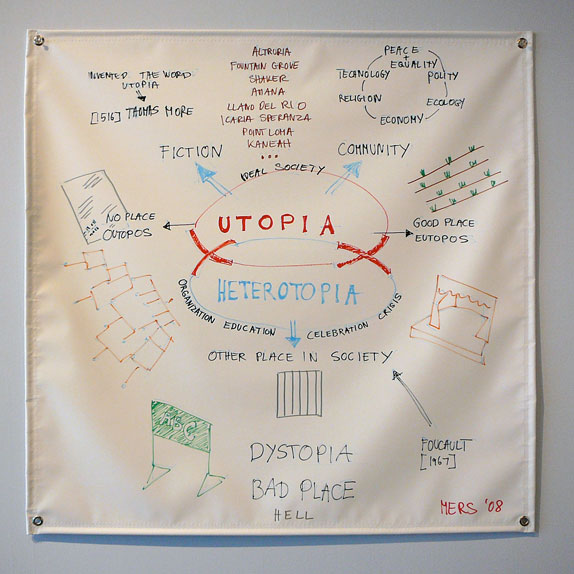 INVENTED THE WORD
UTOPIA
[1516] THOMAS MORE
ALTRURIA
FOUNTAIN GROVE
SHAKER
AMANA
LLANO DEL RIO
ICARIA SPERANZA
POINT LOMA
KANEAH
...
PEACE
+
EQUALITY
TECHNOLOGY
POLITY
RELIGION
ECOLOGY
ECONOMY
FICTION
COMMUNITY
IDEAL SOCIETY
NO PLACE
OUTOPOS
UTOPIA
GOOD PLACE
EUTOPOS
HETEROTOPIA
ORGANIZATION EDUCATION CELEBRATION CRISIS
OTHER PLACE IN SOCIETY
ABC
FOUCAULT
[1967]
DYSTOPIA
BAD PLACE
HELL
MERS '08